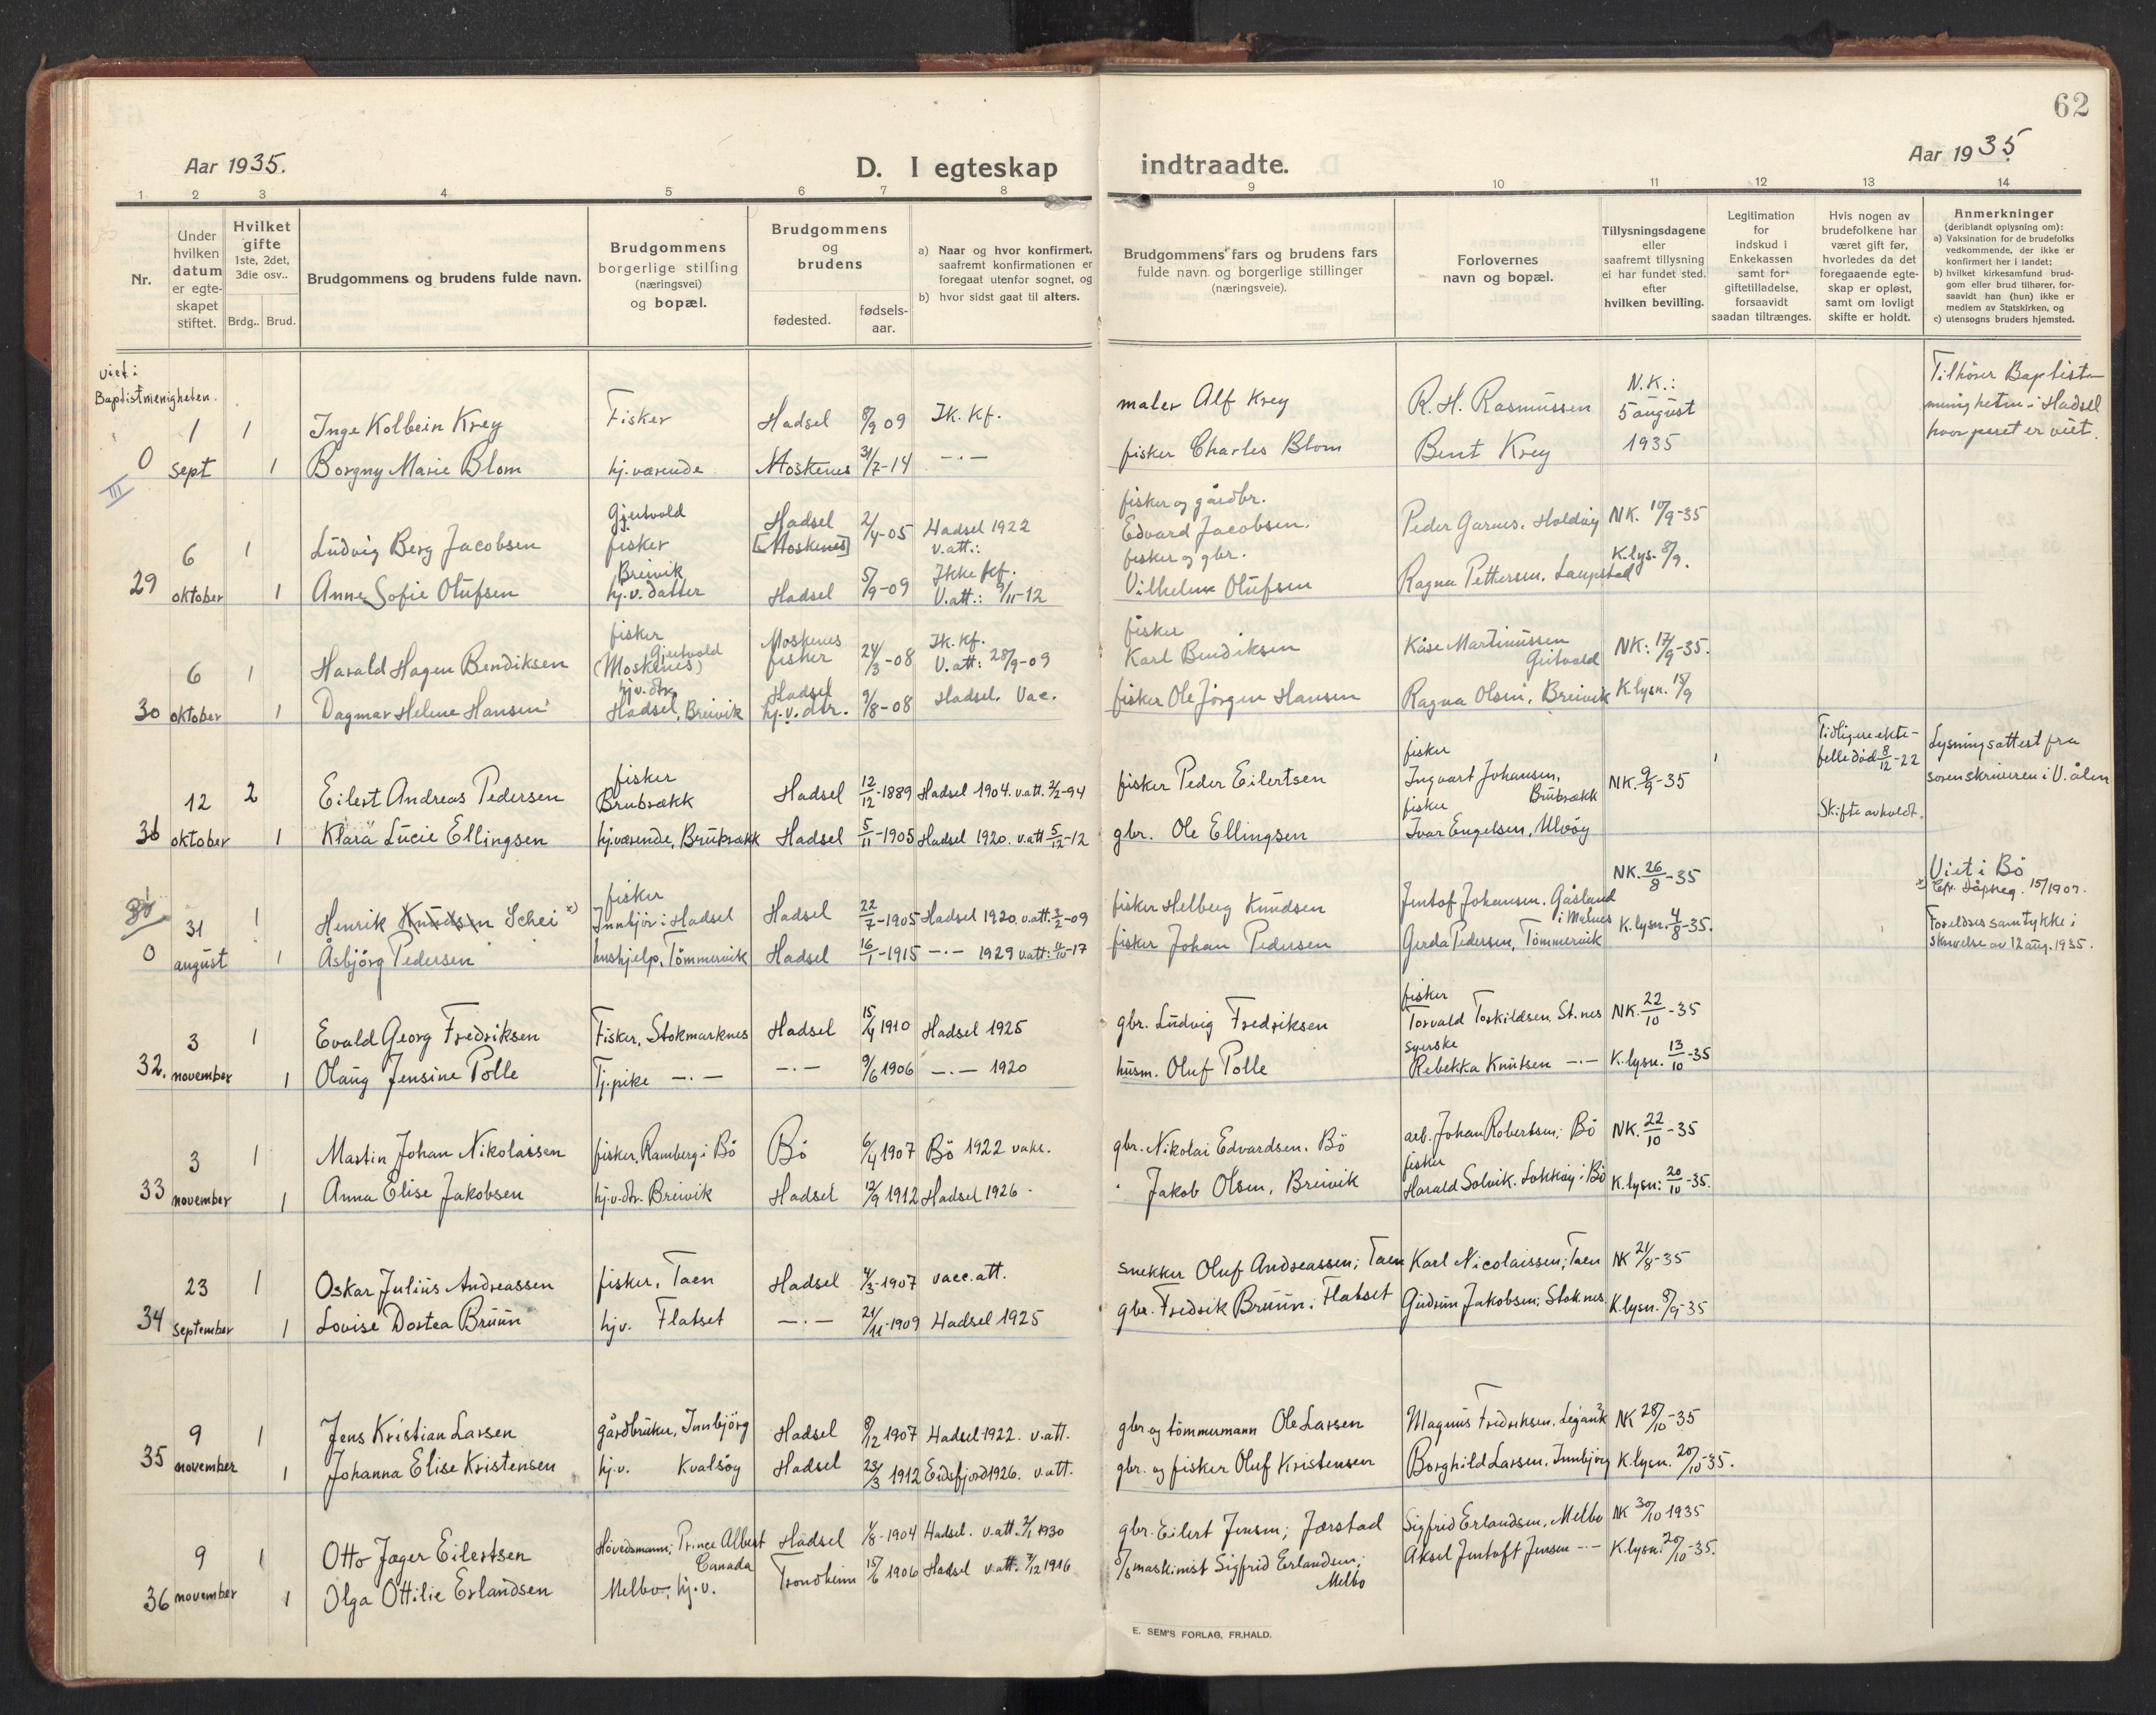 62
Aar 1935.
D. I egteskap indtraadte.
Aar 1935
1 2 3 4 5 6 7 8 9 10 11 12 13 14
Nr.
Under hvilken datum er egteskapet stiftet.
Hvilket gifte 1ste, 2det, 3die osv..
Brdg.. Brud.
Brudgommens og brudens fulde navn.
Brudgommens borgerlige stilling (næringsvei) og bopæl.
Brudgommens og brudens
fødested.
fødsels-aar.
a) Naar og hvor konfirmert, saafremt konfirmationen er foregaat utenfor sognet, og
b) hvor sidst gaat til alters.
Brudgommens fars og brudens fars fulde navn og borgerlige stillinger (næringsveie).
Forlovernes navn og bopæl.
Tillysningsdagene eller saafremt tillysning ei har fundet sted, efter hvilken bevilling.
Legitimation for indskud i Enkekassen samt for giftetilladelse, forsaavidt saadan tiltrænges.
Hvis nogen av brudefolkene har været gift før, hvorledes da det foregaaende egteskap er opløst, samt om lovligt skifte er holdt.
Anmerkninger (deriblandt oplysning om):
a) Vaksination for de brudefolks vedkommende, der ikke er konfirmert her i landet;
b) hvilket kirkesamfund brudgom eller brud tilhører, forsaavidt han (hun) ikke er medlem av Statskirken, og
c) utensogns bruders hjemsted.
viet i Baptistmenigheten.
1 1 Inge Kolbein Krey Fisker Hadsel 8/9 09 Ik. kf. maler Alf Krey R. H. Rasmussen N.K.: 5 august 1935 Tilhører Baptistmenigheten i Hadsel hvor paret er viet.
0 sept 1 Borgny Marie Blom hj.værende Moskenes 31/7-14 —·— fisker Charles Blom Bent Krey
III
6 1 Ludvig Berg Jacobsen Gjeitvold fisker Hadsel [Moskenes] 2/4-05 Hadsel 1922 v.att.: fisker og gårdbr. Edvard Jacobsen. Peder Garnes, Holdøy NK. 10/9-35
29 oktober 1 Anne Sofie Olufsen Breivik hj.v. datter Hadsel 5/9-09 Ikke kf. V.att.: 9/11-12 fisker og gbr. Vilhelm Olufsen Ragna Pettersen, Laupstad K.lys. 8/9.
6 1 Harald Hagen Bendiksen fisker Gjeitvold (Moskenes) Moskenes fisker 24/3-08 Ik. kf. V.att: 28/9-09 fisker Karl Bendiksen Kåre Martinussen Geitvold NK: 17/9-35.
30 oktober 1 Dagmar Helene Hansen hj.v.dtr. Hadsel, Breivik Hadsel hj.v.dtr. 9/8-08 Hadsel. Vac. fisker Ole Jörgen Hansen Ragna Olsen, Breivik K.lysn. 15/9
12 2 Eilert Andreas Pedersen fisker Brubrækk Hadsel 12/12-1889 Hadsel 1904. v.att. 2/2-94 fisker Peder Eilertsen fisker Ingvart Johansen, Brubrækk NK. 9/9-35 Tidligere ektefelle død 8/12-22 Skifte avholdt. Lysningsattest fra sorenskriveren i V.ålen
31 oktober 1 Klara Lucie Ellingsen hj.værende, Brubrækk Hadsel 5/11-1905 Hadsel 1920. v.att 5/12-12 gbr. Ole Ellingsen fisker Ivar Engelsen, Ulvöy
31 1 Henrik Knudsen Schei x) fisker Innbjör i Hadsel Hadsel 22/7-1905 Hadsel 1920. v.att. 2/2-09 fisker Helberg Knudsen Jentof Johansen, Gåsland i Malnes NK. 26/8-35 Viet i Bö
0 august 1 Åsbjörg Pedersen hushjelp, Tömmervik Hadsel 16/1-1915 —·— 1929 v.att: 4/10-17 fisker Johan Pedersen Gerda Pedersen, Tömmervik K.lysn. 4/8-35. x) Cfr. dåpsreg. 15/1907. Foreldres samtykke i skrivelse av 12 aug. 1935.
3 1 Evald Georg Fredriksen Fisker, Stokmarknes Hadsel 15/4 1910 Hadsel 1925 gbr. Ludvig Fredriksen fisker Torvald Torkildsen, St.nes NK. 22/10-35
32. november 1 Olaug Jensine Polle Tj.pike —·— —·— 9/6 1906 —·— 1920 husm. Oluf Polle syerske Rebekka Knutsen —·— K.lysn. 13/10-35
3 1 Martin Johan Nikolaisen fisker, Ramberg i Bö Bö 6/4 1907 Bö 1922 vaks. gbr. Nikolai Edvardsen, Bö arb. Johan Robertsen; Bö NK. 22/10-35
33 november 1 Anna Elise Jakobsen hj.v.dtr. Breivik Hadsel 12/9 1912 Hadsel 1926. Jakob Olsen, Breivik fisker Harald Solvik. Lokköy i Bö K.lysn: 20/10-35.
23 1 Oskar Julius Andreassen fisker, Taen Hadsel 4/3-1907 vacc.att. snekker Oluf Andreassen; Taen Karl Nicolaissen; Taen NK 21/8-35
34 september 1 Lovise Dortea Bruun hjv. Flatset —·— 21/11-1909 Hadsel 1925 gbr. Fredrik Bruun; Flatset Gudrun Jakobsen; Stok.nes. K.lysn. 8/9-35
9 1 Jens Kristian Larsen gårdbruker, Innbjörg Hadsel 8/12 1907 Hadsel 1922. v.att. gbr. og tömmermann Ole Larsen Magnus Fredriksen, NK 28/10-35
35 november 1 Johanna Elise Kristensen hj.v. Kvalsöy Hadsel 23/3 1912 Eidsfjord 1926. v.att. gbr. og fisker Oluf Kristensen Borghild Larsen, Innbjörg K.lysn. 20/10-35.
9 1 Otto Jager Eilertsen Hövedsmann; Prince Albert Canada Hadsel 1/8-1904 Hadsel. v.att. 2/1 1930 gbr. Eilert Jensen; Jorstad Sigfrid Erlandsen, Melbo NK 30/10 1935
36 november 1 Olga Ottilie Erlandsen Melbo, hj.v. Trondheim 15/6 1906 Hadsel v.att. 7/12 1916 d/s maskinist Sigfrid Erlandsen; Melbo Aksel Jentoft Jensen —·— K.lysn. 20/10-35.
E. SEM'S FORLAG, FR.HALD.